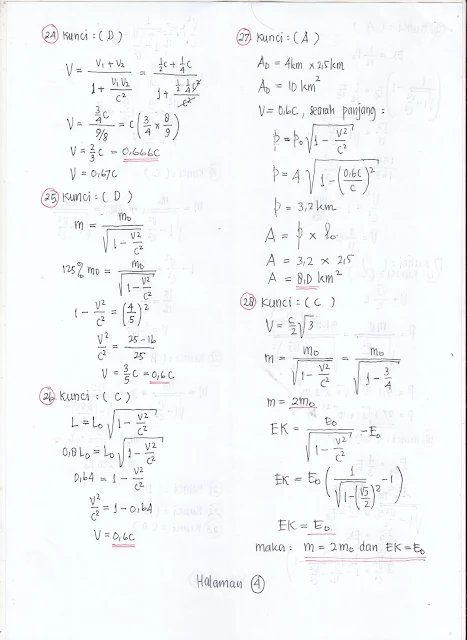 24 Kunci : ( D )
V = (V₁ + V₂) / (1 + V₁V₂/C²) = (½C + ¼C) / (1 + ½·¼C²/C²)
V = (¾C) / (9/8) = C (3/4 × 8/9)
V = ⅔C = 0,666C
V = 0,67C
25 Kunci : ( D )
m = m₀ / √(1 - V²/C²)
125% m₀ = m₀ / √(1 - V²/C²)
1 - V²/C² = (4/5)²
V²/C² = (25-16)/25
V = 3/5 C = 0,6C
26 Kunci : ( C )
L = L₀ √(1 - V²/C²)
0,8L₀ = L₀ √(1 - V²/C²)
0,64 = 1 - V²/C²
V²/C² = 1 - 0,64
V = 0,6C
27 Kunci : ( A )
A₀ = 4km × 2,5km
A₀ = 10 km²
V = 0,6C, searah panjang :
p = p₀ √(1 - V²/C²)
p = 4 √(1 - (0,6C/C)²)
p = 3,2 km
A = p × l₀
A = 3,2 × 2,5
A = 8,0 km²
28 Kunci : ( C )
V = C/2 √3
m = m₀ / √(1 - V²/C²) = m₀ / √(1 - 3/4)
m = 2m₀
EK = E₀ / √(1 - V²/C²) - E₀
EK = E₀ (1 / √(1 - (√3/2)²) - 1)
EK = E₀
maka : m = 2m₀ dan EK = E₀
Halaman 4